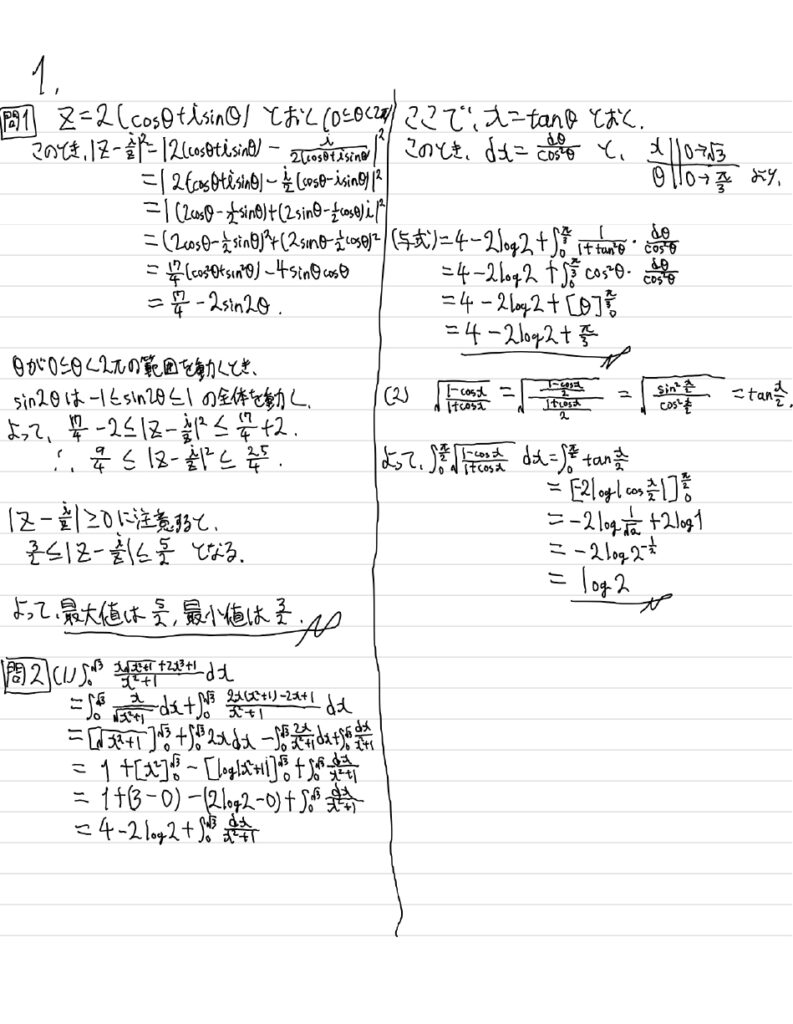 1.
問1 z=2(cosθ+isinθ) とおく (0≤θ<2π)
このとき, |z-i/z|²=|2(cosθ+isinθ) - i/2(cosθ+isinθ)|²
=|2(cosθ+isinθ)-i/2(cosθ-isinθ)|²
=|(2cosθ-1/2sinθ)+(2sinθ-1/2cosθ)i|²
=(2cosθ-1/2sinθ)²+(2sinθ-1/2cosθ)²
=17/4(cos²θ+sin²θ)-4sinθcosθ
=17/4-2sin2θ.
θが0≤θ<2πの範囲を動くとき,
sin2θは-1≤sin2θ≤1の全体を動く.
よって, 17/4-2≤|z-i/z|²≤17/4+2.
∴ 9/4≤|z-i/z|²≤25/4.
|z-i/z|≥0に注意すると,
3/2≤|z-i/z|≤5/2 となる.
よって, 最大値は5/2, 最小値は3/2.
問2 (1) ∫₀^√3 (x√(x²+1)+2x³+1)/(x²+1) dx
=∫₀^√3 x/√(x²+1) dx+∫₀^√3 (2x(x²+1)-2x+1)/(x²+1) dx
=[√(x²+1)]₀^√3+∫₀^√3 2xdx-∫₀^√3 2x/(x²+1) dx+∫₀^√3 dx/(x²+1)
=1+[x²]₀^√3-[log|x²+1|]₀^√3+∫₀^√3 dx/(x²+1)
=1+(3-0)-(2log2-0)+∫₀^√3 dx/(x²+1)
=4-2log2+∫₀^√3 dx/(x²+1)
ここで, x=tanθ とおく.
このとき, dx=dθ/cos²θ と,
x | 0→√3
θ | 0→π/3 より,
(与式)=4-2log2+∫₀^π/3 1/(1+tan²θ)・dθ/cos²θ
=4-2log2+∫₀^π/3 cos²θ・dθ/cos²θ
=4-2log2+[θ]₀^π/3
=4-2log2+π/3
(2) √((1-cosx)/(1+cosx))=√(((1-cosx)/2)/((1+cosx)/2))=√((sin²x/2)/(cos²x/2))=tanx/2.
よって, ∫₀^π/2 √((1-cosx)/(1+cosx)) dx=∫₀^π/2 tanx/2
=[-2log|cosx/2|]₀^π/2
=-2log1/√2+2log1
=-2log2^-1/2
=log2